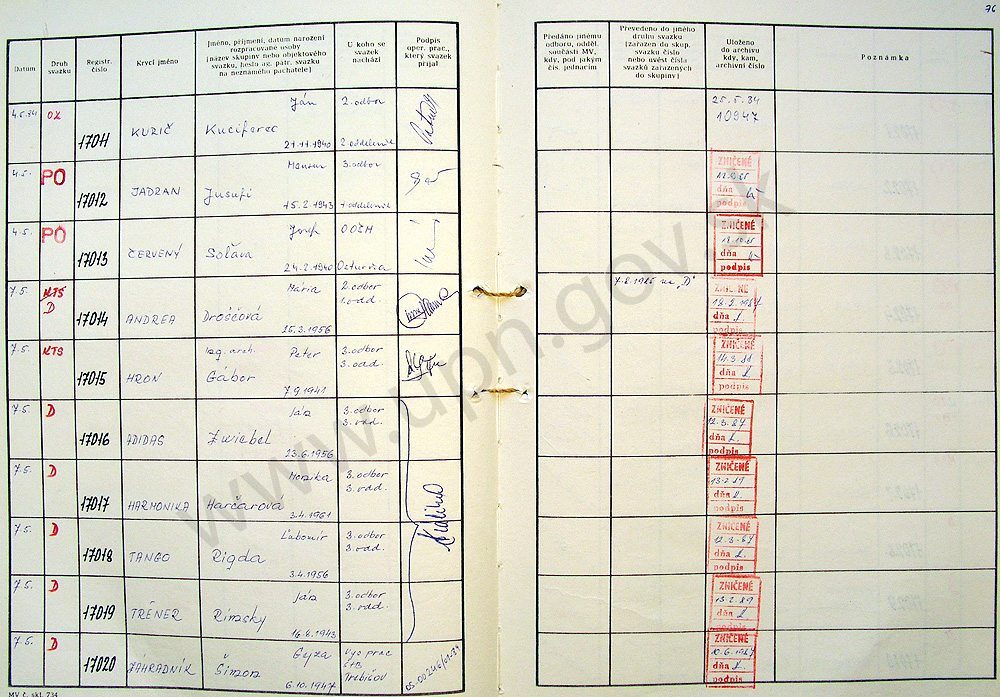 76
Datum
Druh svazku
Registr. číslo
Krycí jméno
Jméno, příjmení, datum narození
rozpracované osoby
(název skupiny nebo objektového
svazku, heslo ag. pátr. svazku
na neznámého pachatele)
U koho se
svazek
nachází
Podpis
oper. prac.,
který svazek
přijal
Předáno jinému
odboru, odděl.
součásti MV,
kdy, pod jakým
čís. jednacím
Převedeno do jiného
druhu svazku
(zařazen do skup.
svazku číslo
nebo uvést čísla
svazků zařazených
do skupiny)
Uloženo
do archivu
kdy, kam,
archivní číslo
Poznámka
4.5.84 17011 KURIČ Ján
Kuciferec
21.11.1940
2. odbor
2. oddelenie
25.5.84
10947
4.5. PO 17012 JADRAN Mansur
Jusufi
15.2.1943
3. odbor
1. oddelenie
ZNIČENÉ
dňa
podpis
4.5. PO 17013 ČERVENÝ Jozef
Soľava
24.2.1940
ZNIČENÉ
dňa
podpis
7.5. KTS
D
17014 ANDREA Mária
Droščová
2. odbor
1. odd.
7.8.1985 na "D"
ZNIČENÉ
dňa
podpis
7.5. KTS 17015 HRON Ing. arch. Peter
Gábor
7.9.1941
3. odbor
3. odd.
ZNIČENÉ
14.3.88
dňa
podpis
7.5. D 17016 ADIDAS Ján
Zwiebel
23.6.1956
3. odbor
3. odd.
ZNIČENÉ
dňa
podpis
7.5. D 17017 HARMONIKA Monika
Harčarová
3.4.1961
3. odbor
3. odd.
ZNIČENÉ
13.2.89
dňa
podpis
7.5. D 17018 TANGO Ľubomír
Rigda
3.4.1956
3. odbor
3. odd.
ZNIČENÉ
dňa
podpis
7.5. D 17019 TRÉNER Ján
Rimsky
16.8.1943
3. odbor
3. odd.
ZNIČENÉ
13.2.89
dňa
podpis
7.5. D 17020 ZÁHRADNÍK Gejza
Šimon
6.10.1947
ŠtB
Trebišov
ZNIČENÉ
dňa
podpis
MV č. skl. 734
www.upn.gov.sk